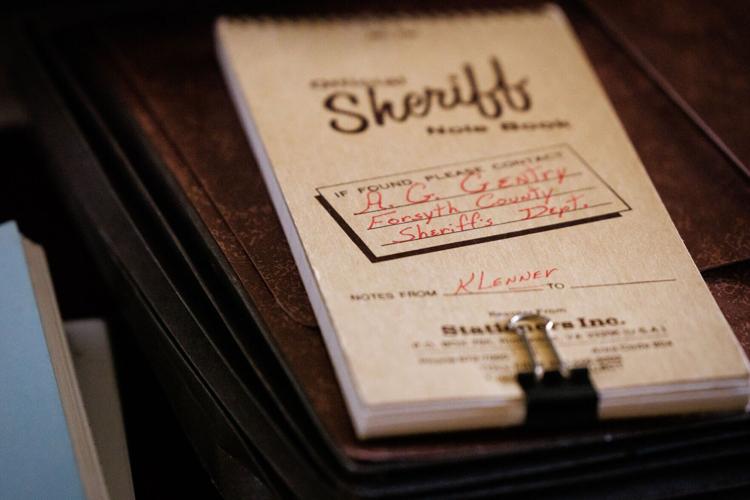 Sheriff
Note Book
IF FOUND PLEASE CONTACT
A. G. GENTRY
Forsyth County
Sheriff's Dept.
NOTES FROM KLENNER TO
Stationers Inc.